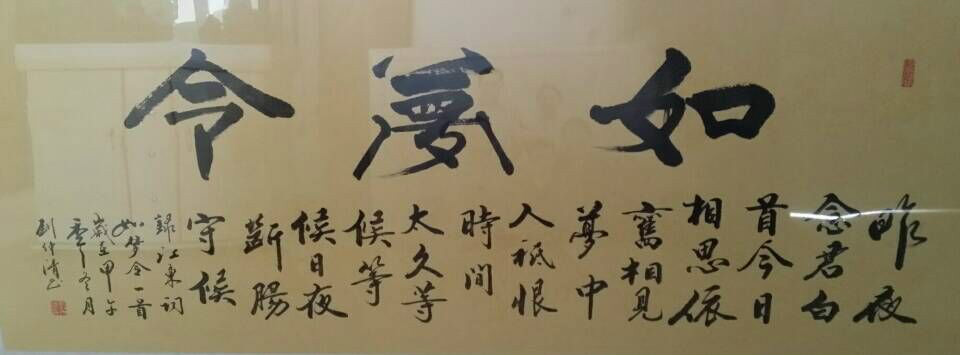 如夢令
昨夜
念君白
首今日
相思依
舊相見
夢中
人祇恨
時間
太久等
候等
候日夜
斷腸
守候
錄江東詞
如夢令一首
歲在甲午
季冬月